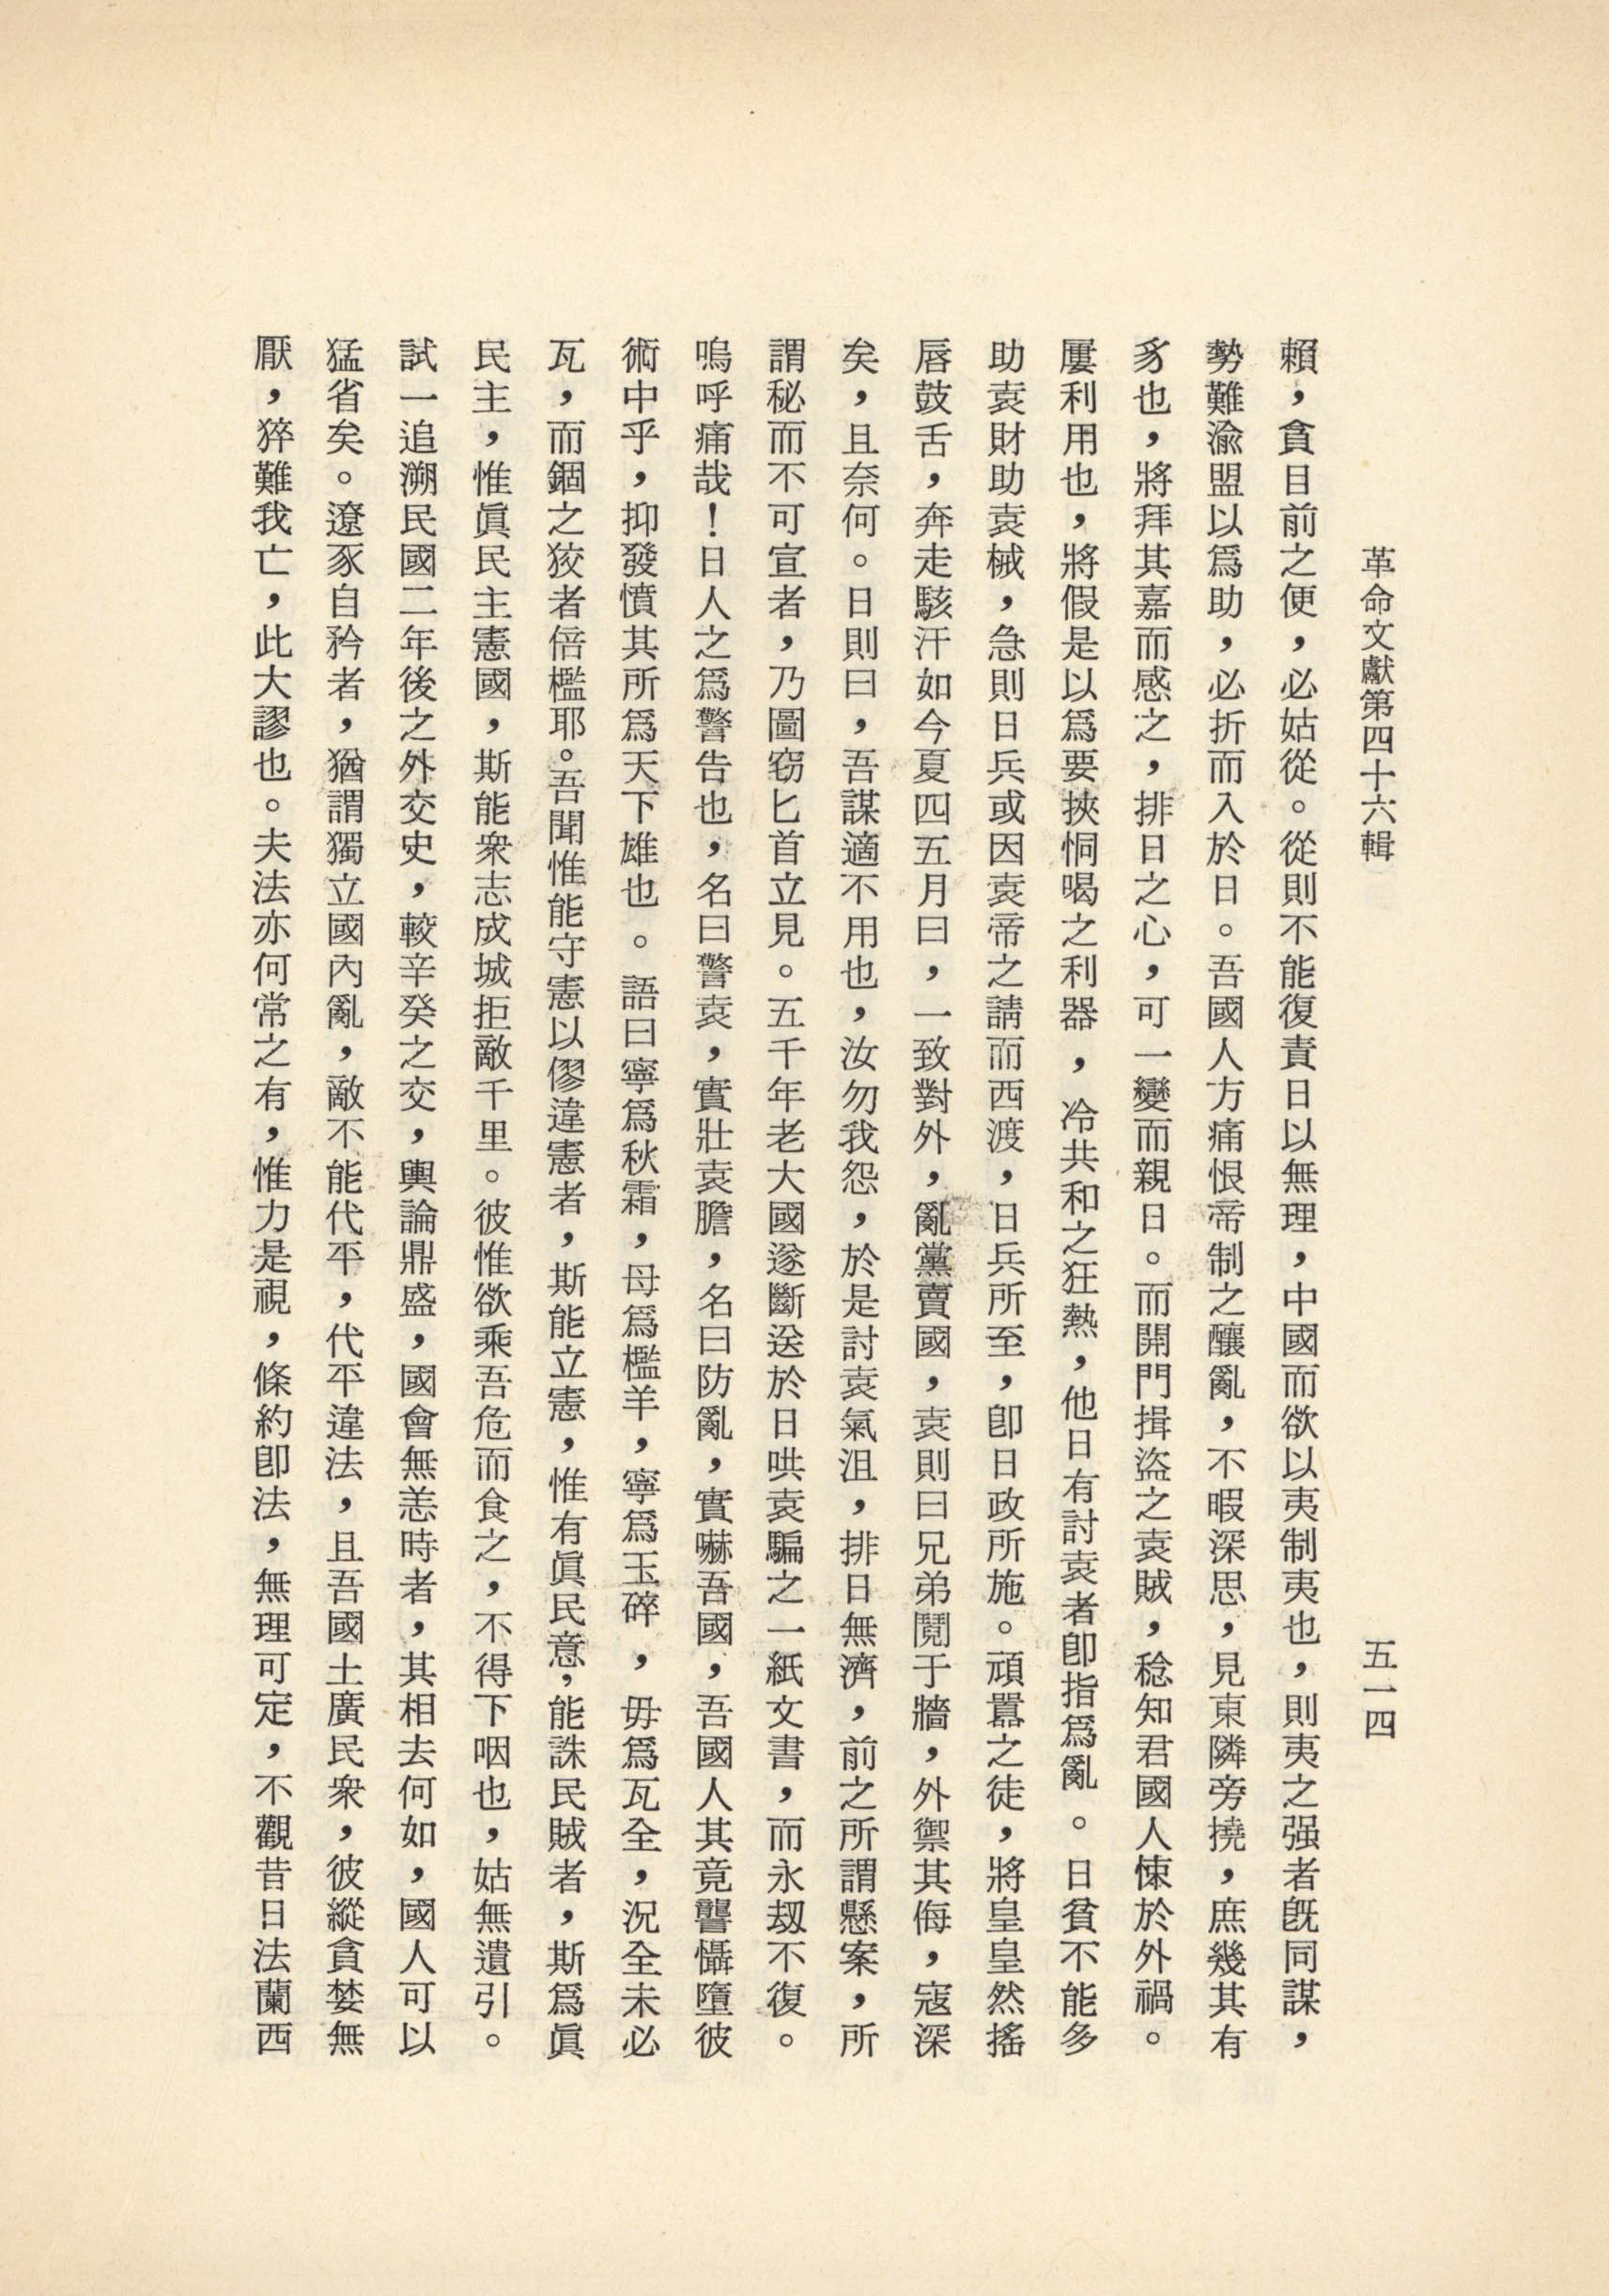 革命文獻第四十六輯
五一四
賴，貪目前之便，必姑從。從則不能復責日以無理，中國而欲以夷制夷也，則夷之强者旣同謀，
勢難渝盟以爲助，必折而入於日。吾國人方痛恨帝制之釀亂，不暇深思，見東隣旁撓，庶幾其有
豸也，將拜其嘉而感之，排日之心，可一變而親日。而開門揖盜之袁賊，稔知君國人悚於外禍。
屢利用也，將假是以爲要挾恫喝之利器，冷共和之狂熱，他日有討袁者卽指爲亂。日貧不能多
助袁財助袁械，急則日兵或因袁帝之請而西渡，日兵所至，卽日政所施。頑嚚之徒，將皇皇然搖
唇鼓舌，奔走駭汗如今夏四五月曰，一致對外，亂黨賣國，袁則曰兄弟鬩于牆，外禦其侮，寇深
矣，且奈何。日則曰，吾謀適不用也，汝勿我怨，於是討袁氣沮，排日無濟，前之所謂懸案，所
謂秘而不可宣者，乃圖窮匕首立見。五千年老大國遂斷送於日哄袁騙之一紙文書，而永刼不復。
嗚呼痛哉！日人之爲警告也，名曰警袁，實壯袁膽，名曰防亂，實嚇吾國，吾國人其竟聾懾墮彼
術中乎，抑發憤其所爲天下雄也。語曰寧爲秋霜，母爲檻羊，寧爲玉碎，毋爲瓦全，況全未必
瓦，而錮之狡者倍檻耶。吾聞惟能守憲以僇違憲者，斯能立憲，惟有眞民意，能誅民賊者，斯爲眞
民主，惟眞民主憲國，斯能衆志成城拒敵千里。彼惟欲乘吾危而食之，不得下咽也，姑無遺引。
試一追溯民國二年後之外交史，較辛癸之交，輿論鼎盛，國會無恙時者，其相去何如，國人可以
猛省矣。遼豕自矜者，猶謂獨立國內亂，敵不能代平，代平違法，且吾國土廣民衆，彼縱貪婪無
厭，猝難我亡，此大謬也。夫法亦何常之有，惟力是視，條約卽法，無理可定，不觀昔日法蘭西